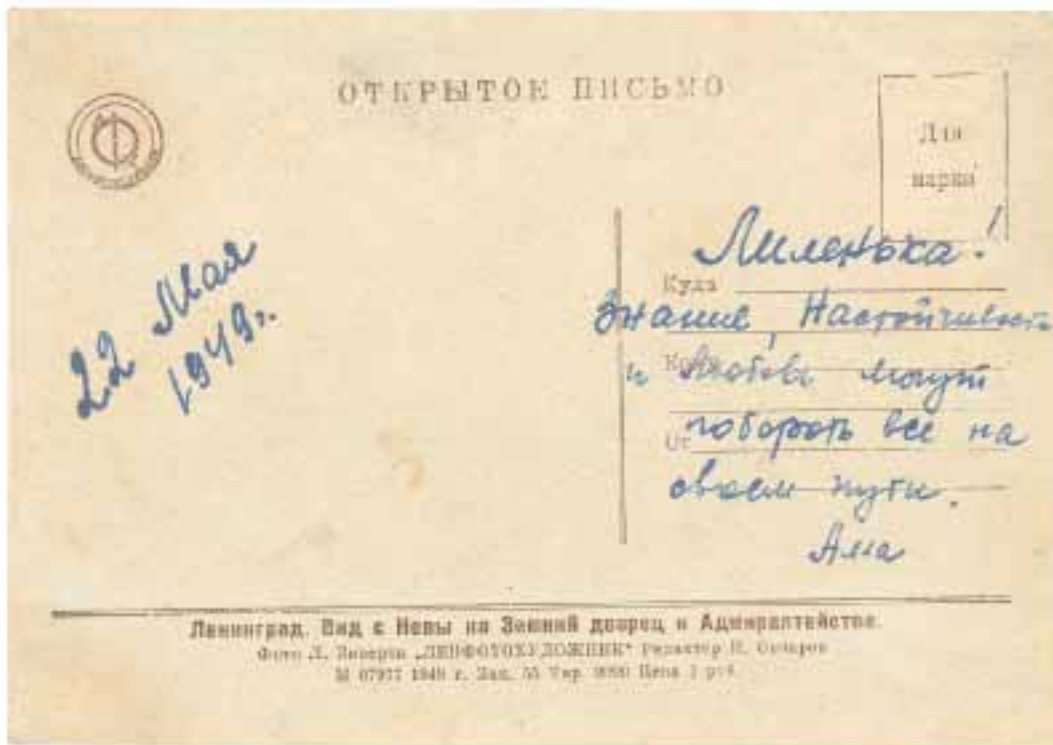 ОТКРЫТОЕ ПИСЬМО
Для
марки
22 Мая
1949 г.
Лиленька!
Куда
Знание, Настойчивость
и Любовь могут
побороть все на
своем пути.
От
Ленинград. Вид с Невы на Зимний дворец и Адмиралтейство.
Фото Л. Зиверта „ЛЕНФОТОХУДОЖНИК“ Редактор
М 07977 1948 г. Зак. 55 Тир. Цена 1 руб.